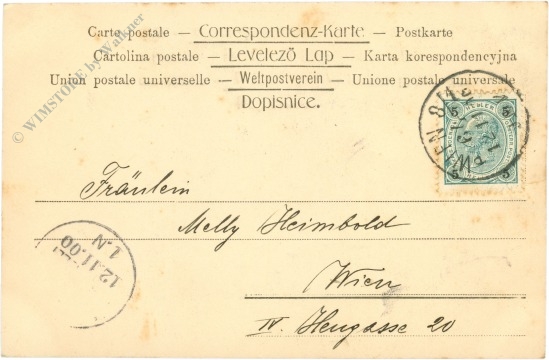 Carte postale — Correspondenz-Karte — Postkarte
Cartolina postale — Levelező Lap — Karta korespondencyjna
Union postale universelle — Weltpostverein — Unione postale universale
Dopisnice.
© WIMSTORE by Walkner
WIEN
Fräulein
Melly Heimbold
Wien
IV. Heugasse 20
12.11.00
1.N